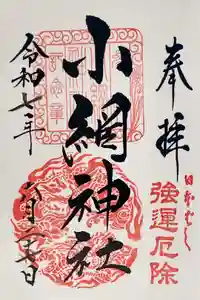 奉拝
日本ばし
強運厄除
小網神社
令和七年
八月二十七日